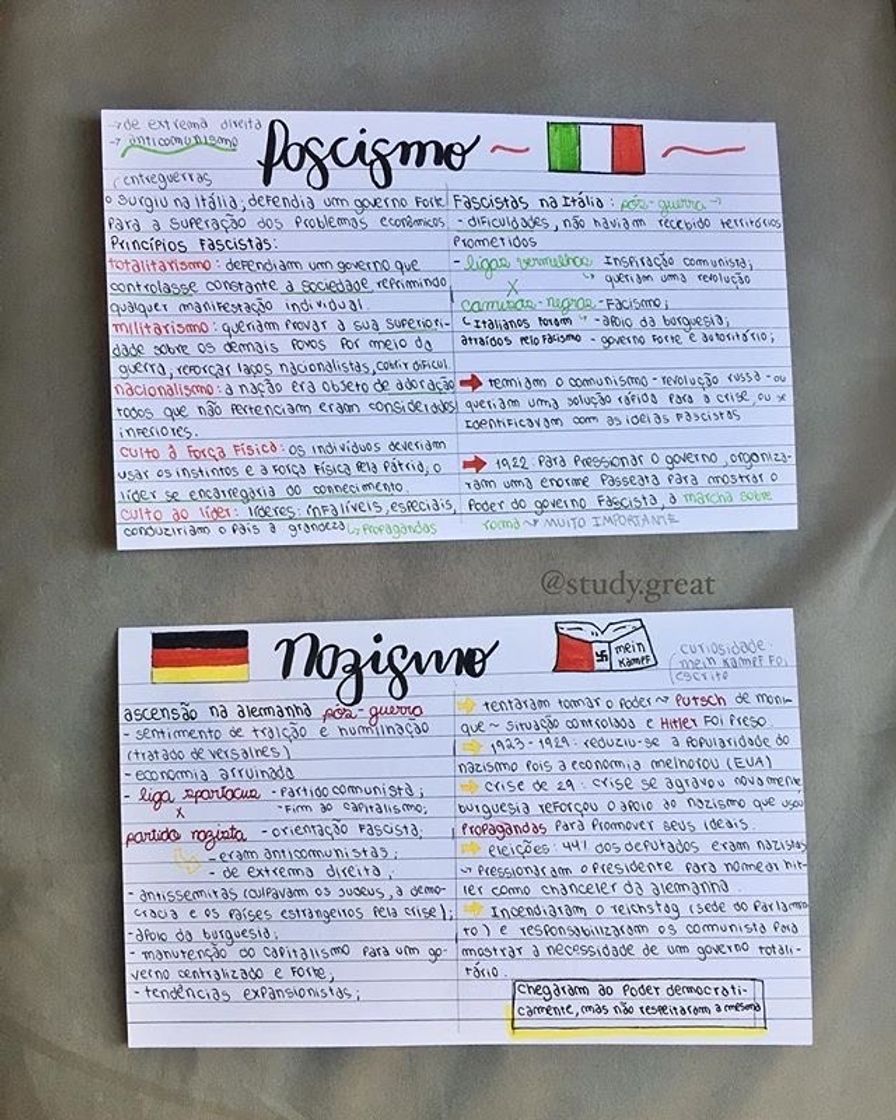 → de extrema direita
→ anticomunismo
Fascismo
entreguerras
surgiu na Itália, defendia um governo forte
para a superação dos problemas econômicos
Princípios Fascistas:
totalitarismo: defendiam um governo que
controlasse constante a sociedade reprimindo
qualquer manifestação individual.
militarismo: queriam provar a sua superiori-
dade sobre os demais povos por meio da
guerra, reforçar laços nacionalistas, cobrir dificul.
nacionalismo: a nação era objeto de adoração
todos que não pertenciam eram considerados
inferiores.
culto à força física: os indivíduos deveriam
usar os instintos e a força física pela pátria, o
líder se encarregaria do conhecimento.
culto ao líder: líderes: infalíveis, especiais,
conduziriam o país a grandeza ↳ propagandas
Fascistas na Itália: pós-guerra →
- dificuldades, não haviam recebido territórios
prometidos
- ligas vermelhas Inspiração comunista;
↳ queriam uma revolução
X
camisas-negras - Facismo;
↳ Italianos foram - apoio da burguesia;
atraídos pelo facismo - governo forte e autoritário;
➡ temiam o comunismo - revolução russa - ou
queriam uma solução rápida para a crise, ou se
identificavam com as ideias fascistas
➡ 1922: para pressionar o governo, organiza-
ram uma enorme passeata para mostrar o
poder do governo fascista, a marcha sobre
roma ~ MUITO IMPORTANTE
@study.great
Nazismo
mein
Kampf
curiosidade:
mein Kampf foi
escrito
ascensão na alemanha pós-guerra
- sentimento de traição e humilhação
(tratado de versalhes)
- economia arruinada
- liga spartacus - Partido comunista;
- Fim ao capitalismo;
X
partido nazista - orientação fascista;
- eram anticomunistas;
- de extrema direita;
- antissemitas (culpavam os judeus, a demo-
cracia e os países estrangeiros pela crise);
- apoio da burguesia;
- manutenção do capitalismo para um go-
verno centralizado e forte;
- tendências expansionistas;
➡ tentaram tomar o poder ~ Putsch de muni-
que ~ situação controlada e Hitler foi preso.
➡ 1923 - 1929: reduziu-se a popularidade do
nazismo pois a economia melhorou (EUA)
➡ crise de 29: crise se agravou novamente
burguesia reforçou o apoio ao nazismo que usou
propagandas para promover seus ideais.
➡ eleições: 44% dos deputados eram nazistas
↳ pressionaram o presidente para nomear hit-
ler como chanceler da alemanha.
➡ Incendiaram o reichstag (sede do parlamen-
to) e responsabilizaram os comunista para
mostrar a necessidade de um governo totali-
tário.
chegaram ao poder democrati-
camente, mas não respeitaram a mesma